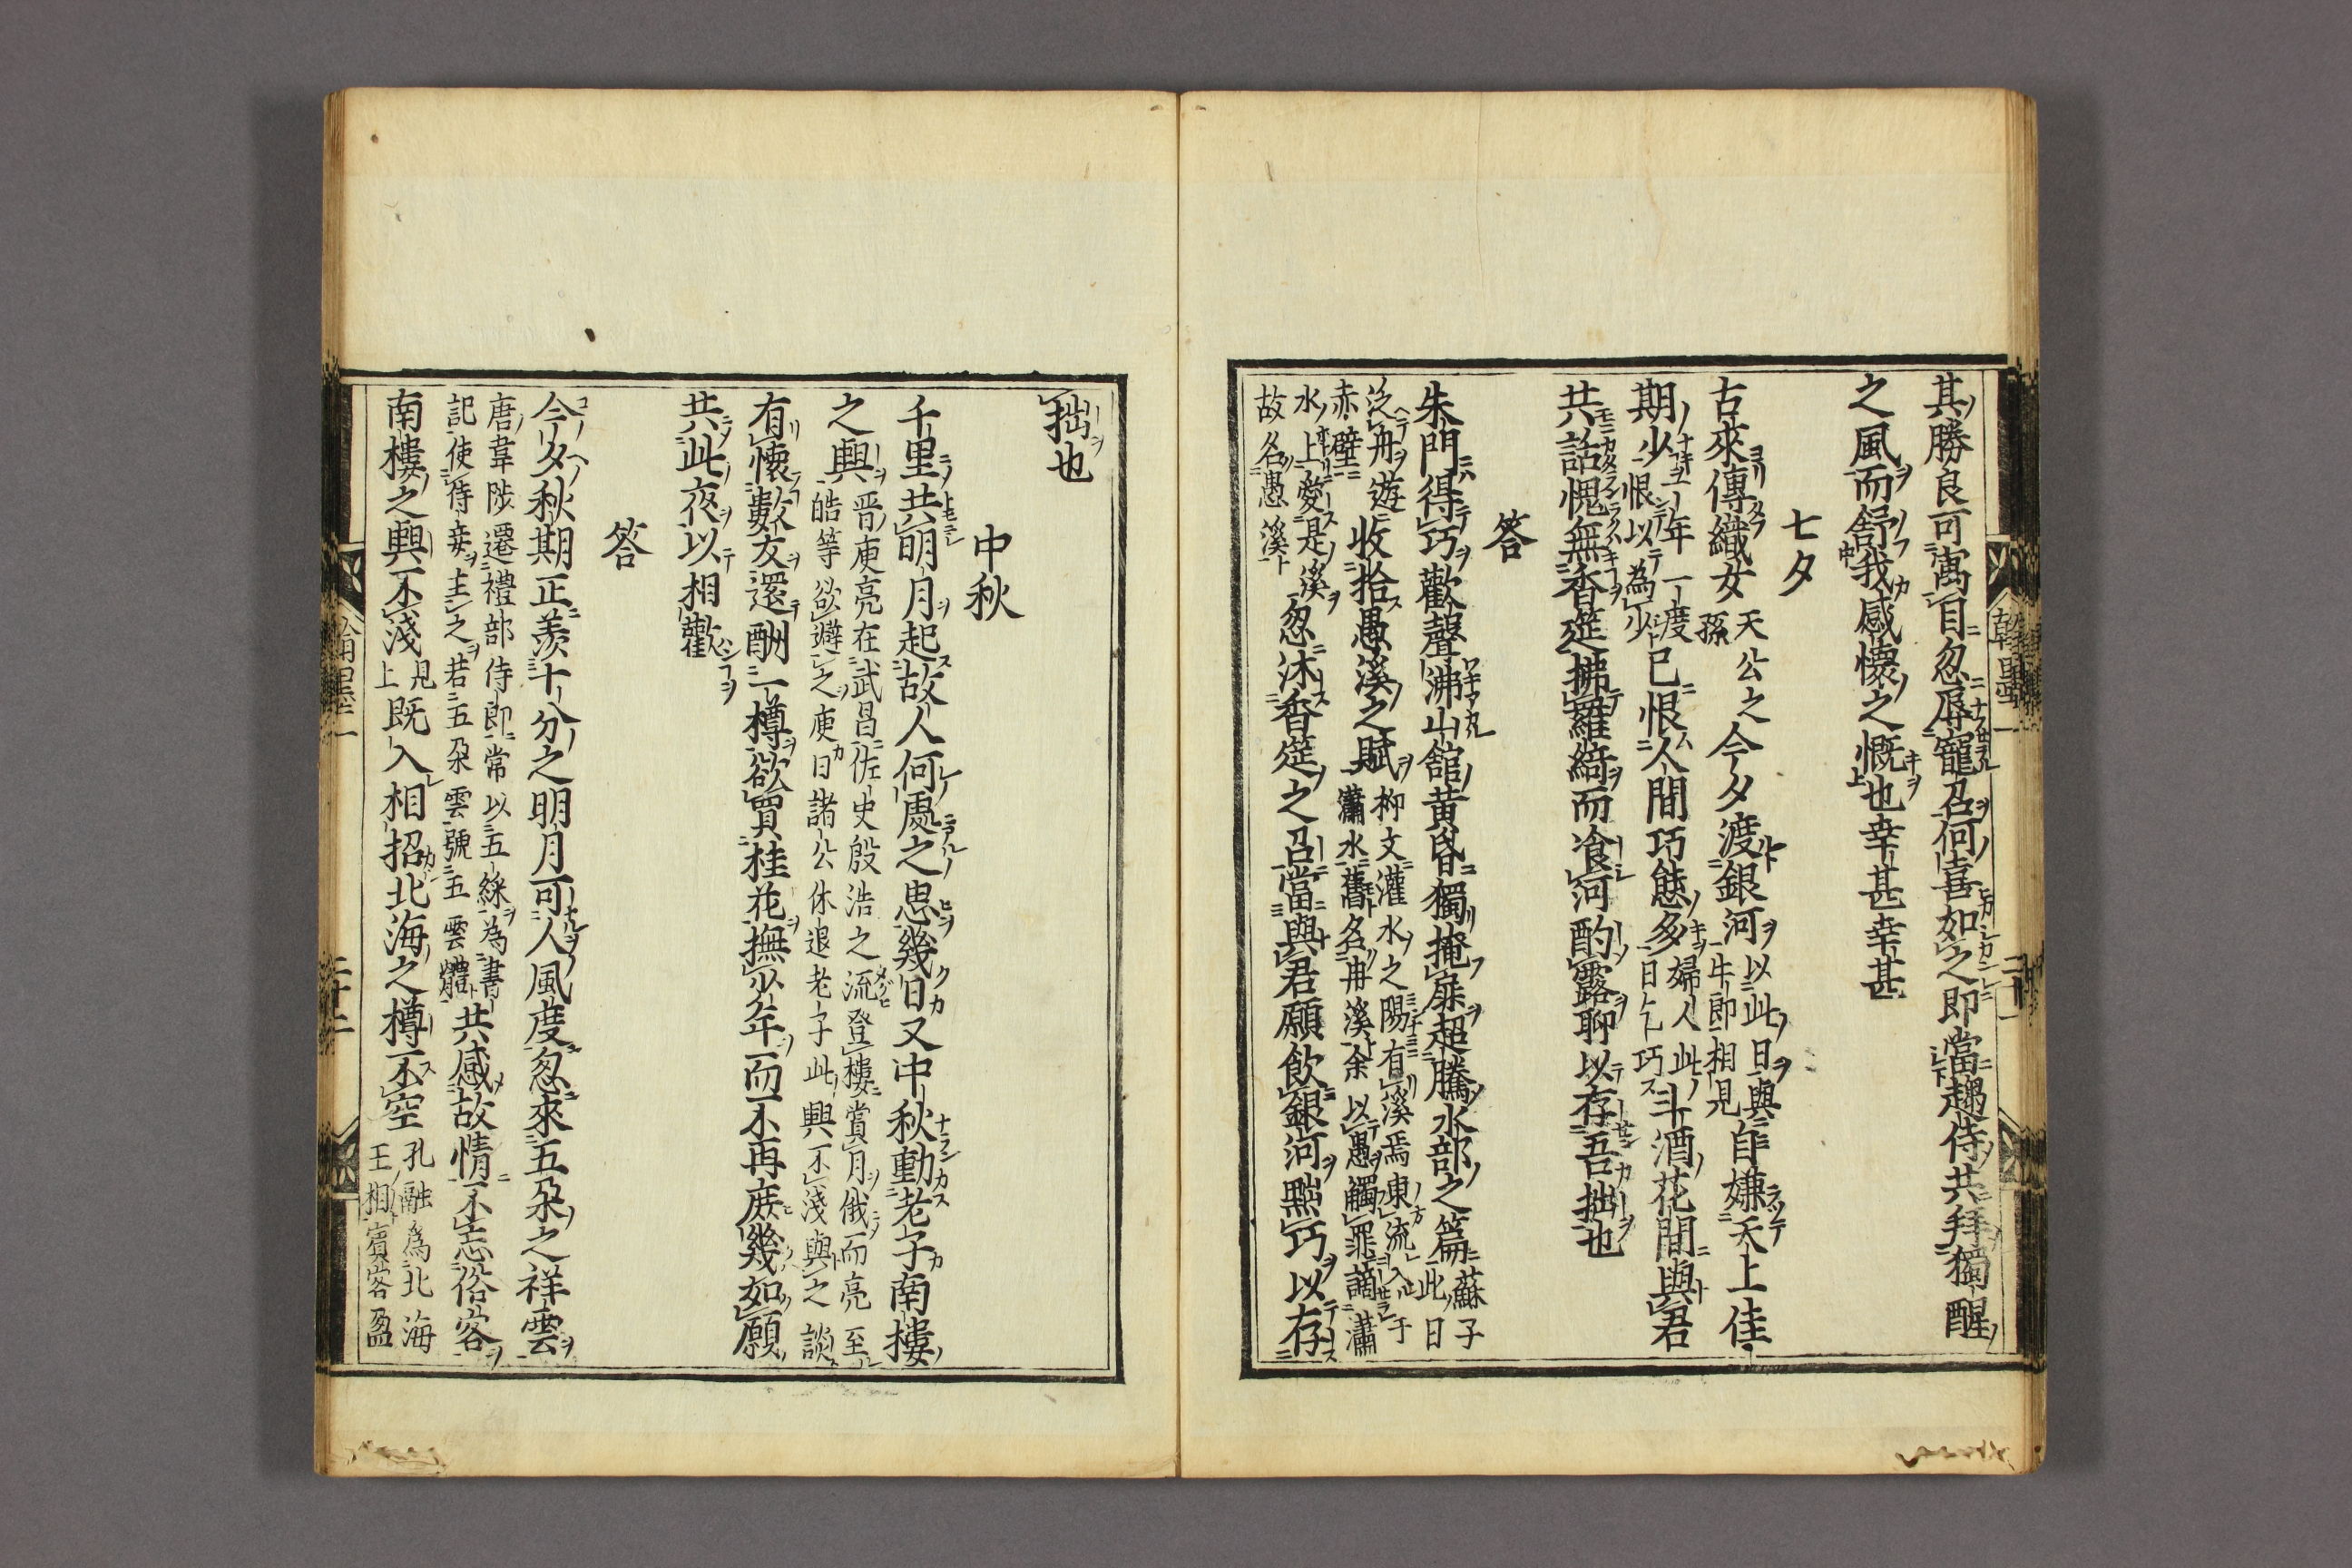 其勝良可寓目忽辱寵召何喜如之即當趨侍共拜獨醒
之風而舒我感懷之慨也幸甚幸甚
七夕
古來傳織女天公之孫今夕渡銀河以此日與牛郎相見自嫌天上佳
期少一年一度恨以為少已恨人間巧態多婦人此日乞巧斗酒花間與君
共話愧無香筵拂羅綺而飡河酌露聊以存吾拙也
答
朱門得巧歡聲沸山館黃昏獨掩扉超騰水部之篇蘇子此日
泛舟遊赤壁收拾愚溪之賦柳文灌水之陽有溪焉東流入于瀟水舊名冉溪余以愚觸罪謫瀟
水上愛是溪故名愚溪忽沐香筵之召當與君願飲銀河黜巧以存
拙也
中秋
千里共明月起故人何處之思幾日又中秋動老子南樓
之興晉庾亮在武昌佐史殷浩之流登樓賞月俄而亮至皓等欲避之庾曰諸公休退老子此興不淺與之談
有懷數友還酬一樽欲買桂花撫少年而不再庶幾如願
共此夜以相歡
答
今夕秋期正羨十分之明月可人風度忽來五朶之祥雲
唐韋陟遷禮部侍郎常以五綵為書記使侍妾主之若五朶雲號五雲體共感故情不忘俗客
南樓之興不淺見上既入相招北海之樽不空孔融為北海王相賓客盈
翰墨一
二十一
翰墨一
二十二